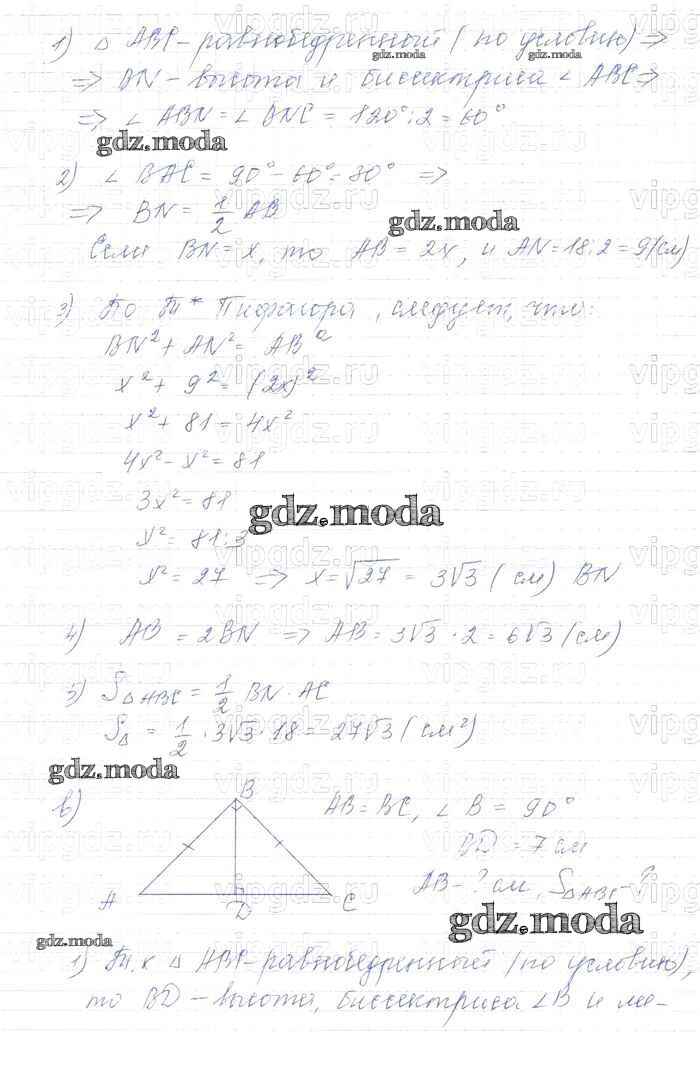 1) △ ABC - равнобедренный (по условию) ⇒
⇒ BN - высота и биссектриса ∠ ABC ⇒
⇒ ∠ ABN = ∠ BNC = 120° : 2 = 60°
gdz.moda
2) ∠ BAC = 90° - 60° = 30° ⇒
⇒ BN = 1/2 AB
gdz.moda
Если BN = x, то AB = 2x, и AN = 18 : 2 = 9 (см)
3) По т* Пифагора, следует, что:
BN² + AN² = AB²
x² + 9² = (2x)²
x² + 81 = 4x²
4x² - x² = 81
3x² = 81
gdz.moda
x² = 81 : 3
x² = 27 ⇒ x = √27 = 3√3 (см) BN
4) AB = 2BN ⇒ AB = 3√3 · 2 = 6√3 (см)
5) S△ABC = 1/2 BN · AC
S△ = 1/2 · 3√3 · 18 = 27√3 (см²)
gdz.moda
в)
B
A D C
AB = BC, ∠ B = 90°
BD = 7 см
AB - ? см, S△ABC - ?
gdz.moda
gdz.moda
1) Т.к △ ABC - равнобедренный (по условию),
то BD - высота, биссектриса ∠B и ме-